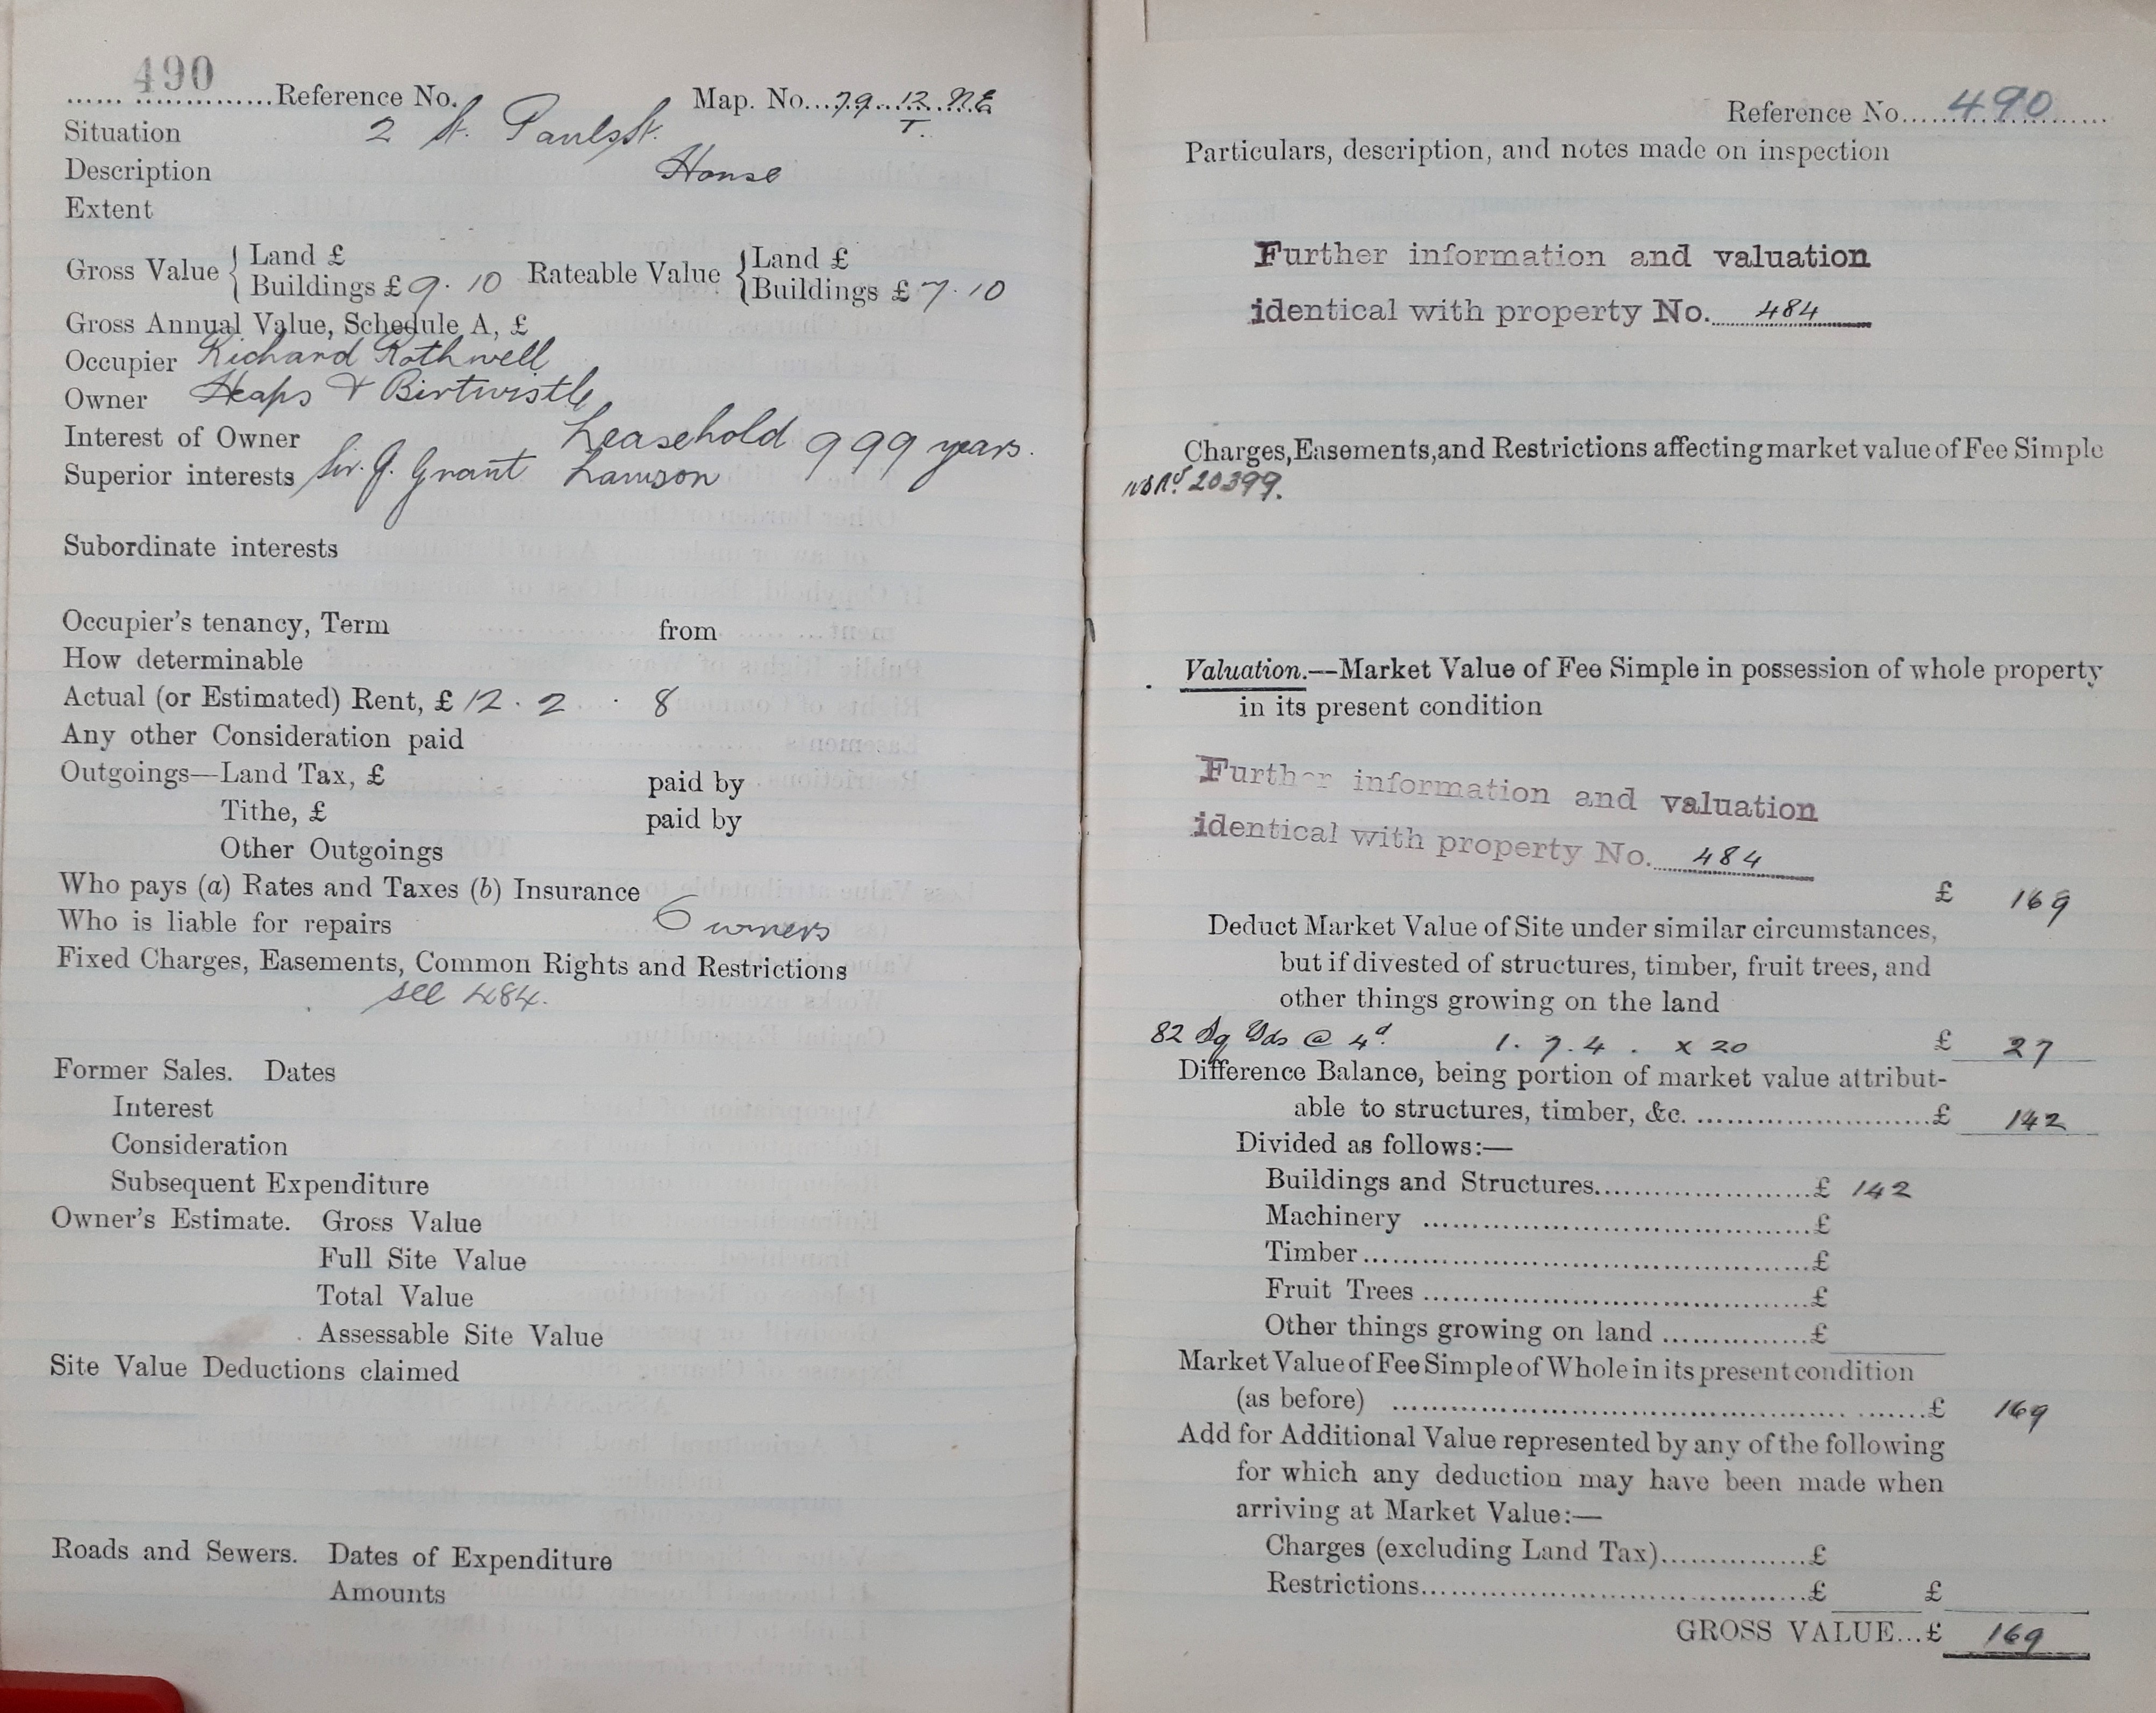 490
Reference No. Map. No. 79. 12. N.E
T.
Situation 2 St. Pauls St.
Description House
Extent
Gross Value { Land £ Rateable Value { Land £
Buildings £ 9. 10 Buildings £ 7. 10
Gross Annual Value, Schedule A, £
Occupier Richard Rothwell
Owner Heaps & Birtwistle
Interest of Owner Leasehold 999 years.
Superior interests Sir. J. Grant Lawson
Subordinate interests
Occupier's tenancy, Term from
How determinable
Actual (or Estimated) Rent, £ 12. 2. 8
Any other Consideration paid
Outgoings—Land Tax, £ paid by
Tithe, £ paid by
Other Outgoings
Who pays (a) Rates and Taxes (b) Insurance
Who is liable for repairs Owners
Fixed Charges, Easements, Common Rights and Restrictions
see 484.
Former Sales. Dates
Interest
Consideration
Subsequent Expenditure
Owner's Estimate. Gross Value
Full Site Value
Total Value
Assessable Site Value
Site Value Deductions claimed
Roads and Sewers. Dates of Expenditure
Amounts
Reference No. 490
Particulars, description, and notes made on inspection
Further information and valuation
identical with property No. 484
Charges, Easements, and Restrictions affecting market value of Fee Simple
20399.
Valuation.—Market Value of Fee Simple in possession of whole property
in its present condition
Further information and valuation
identical with property No. 484
£ 169
Deduct Market Value of Site under similar circumstances,
but if divested of structures, timber, fruit trees, and
other things growing on the land
82 Sq Yds @ 4d. 1. 7. 4. x 20 £ 27
Difference Balance, being portion of market value attribut-
able to structures, timber, &c. £ 142
Divided as follows:—
Buildings and Structures £ 142
Machinery £
Timber £
Fruit Trees £
Other things growing on land £
Market Value of Fee Simple of Whole in its present condition
(as before) £ 169
Add for Additional Value represented by any of the following
for which any deduction may have been made when
arriving at Market Value:—
Charges (excluding Land Tax) £
Restrictions £ £
GROSS VALUE...£ 169